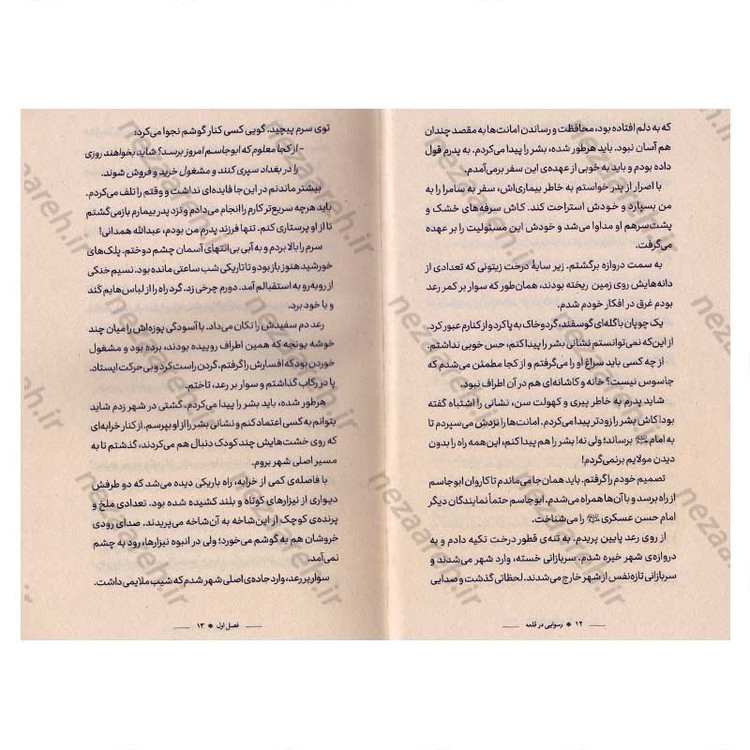 که به دلم افتاده بود، محافظت و رساندن امانت‌ها به مقصد چندان
هم آسان نبود. باید هرطور شده، بشر را پیدا می‌کردم. به پدرم قول
داده بودم و باید به خوبی از عهده‌ی این سفر برمی‌آمدم.
با اصرار از پدر خواستم به خاطر بیماری‌اش، سفر به سامرا را به
من بسپارد و خودش استراحت کند. کاش سرفه‌های خشک و
پشت‌سرهم او مداوا می‌شد و خودش این مسئولیت را بر عهده
می‌گرفت.
به سمت دروازه برگشتم. زیر سایهٔ درخت زیتونی که تعدادی از
دانه‌هایش روی زمین ریخته بودند، همان‌طور که سوار بر کمر رعد
بودم غرق در افکار خودم شدم.
یک چوپان با گله‌ای گوسفند، گرد و خاک به پا کرد و از کنارم عبور کرد.
از این‌که نمی‌توانستم نشانی بشر را پیدا کنم، حس خوبی نداشتم.
از چه کسی باید سراغ او را می‌گرفتم و از کجا مطمئن می‌شدم که
جاسوس نیست؟ خانه و کاشانه‌ای هم در آن اطراف نبود.
شاید پدرم به خاطر پیری و کهولت سن، نشانی را اشتباه گفته
بود! کاش بشر را زودتر پیدا می‌کردم. امانت‌ها را نزدش می‌سپردم تا
به امام برساند؛ ولی نه! بشر را هم پیدا کنم، این همه راه را بدون
دیدن مولایم برنمی‌گردم!
تصمیم خودم را گرفتم. باید همان جا می‌ماندم تا کاروان ابوجاسم
از راه برسد و با آن‌ها همراه می‌شدم. ابوجاسم حتماً نمایندگان دیگر
امام حسن عسکری را می‌شناخت.
از روی رعد پایین پریدم. به تنه‌ی قطور درخت تکیه دادم و به
دروازه‌ی شهر خیره شدم. سربازانی خسته، وارد شهر می‌شدند و
سربازانی تازه‌نفس از شهر خارج می‌شدند. لحظاتی گذشت و صدایی
۱۲ * رسوایی در قلعه
توی سرم پیچید. گویی کسی کنار گوشم نجوا می‌کرد:
- از کجا معلوم که ابوجاسم امروز برسد؟ شاید بخواهند روزی
را در بغداد سپری کنند و مشغول خرید و فروش شوند.
بیشتر ماندنم در این‌جا فایده‌ای نداشت و وقتم را تلف می‌کردم.
باید هرچه سریع‌تر کارم را انجام می‌دادم و نزد پدر بیمارم بازمی‌گشتم
تا از او پرستاری کنم. تنها فرزند پدرم من بودم، عبدالله همدانی!
سرم را بالا بردم و به آبی بی‌انتهای آسمان چشم دوختم. پلک‌های
خورشید هنوز باز بود و تا تاریکی شب ساعتی مانده بود. نسیم خنکی
از روبه‌رو به استقبالم آمد. دورم چرخی زد. گرد راه را از لباس‌هایم کَند
و با خود برد.
رعد دم سفیدش را تکان می‌داد. با آسودگی پوزه‌اش را میان چند
خوشه یونجه که همین اطراف روییده بودند، برده بود و مشغول
خوردن بود که افسارش را گرفتم. گردن راست کرد و بی‌حرکت ایستاد.
پا در رکاب گذاشتم و سوار بر رعد، تاختم.
هرطور شده، باید بشر را پیدا می‌کردم. گشتی در شهر زدم شاید
بتوانم به کسی اعتماد کنم و نشانی بشر را از او بپرسم. از کنار خرابه‌ای
که روی خشت‌هایش چند کودک دنبال هم می‌کردند، گذشتم تا به
مسیر اصلی شهر بروم.
با فاصله‌ی کمی از خرابه، راه باریکی دیده می‌شد که دو طرفش
دیواری از نیزارهای کوتاه و بلند کشیده شده بود. تعدادی ملخ و
پرنده‌ی کوچک از این شاخه به آن شاخه می‌پریدند. صدای رودی
خروشان هم به گوشم می‌خورد؛ ولی در انبوه نیزارها، رود به چشم
نمی‌آمد.
سوار بر رعد، وارد جاده‌ی اصلی شهر شدم که شیب ملایمی داشت.
فصل اول * ۱۳
nezaareh.ir